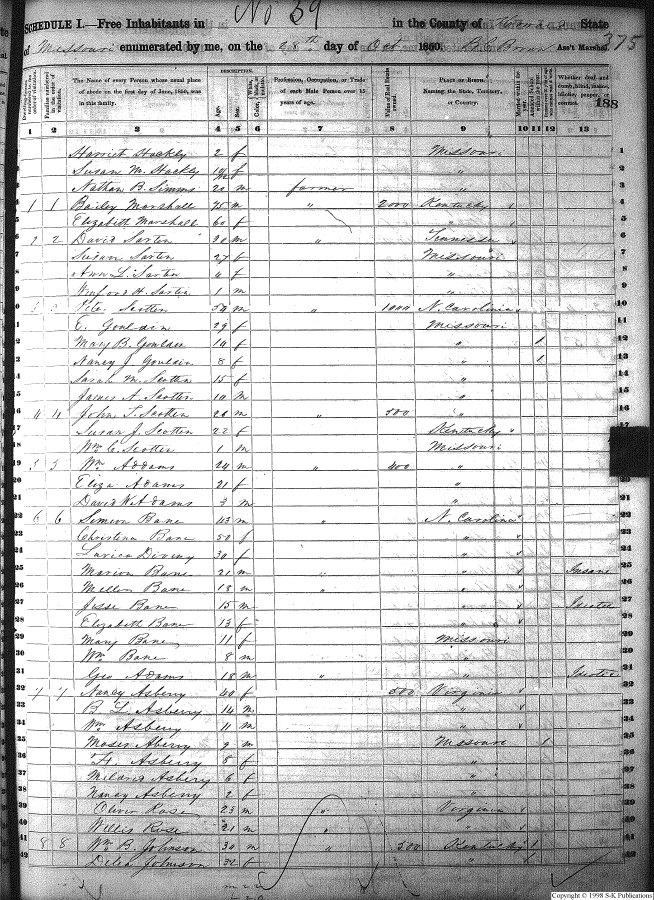 SCHEDULE I.—Free Inhabitants in No 59 in the County of State
of Missouri enumerated by me, on the 28th day of Oct 1850. Ass't Marshal. 375
188
Dwelling-houses numbered in the order of visitation. Families numbered in the order of visitation. The Name of every Person whose usual place of abode on the first day of June, 1850, was in this family. DESCRIPTION. Age. Sex. Color, White, black, or mulatto. Profession, Occupation, or Trade of each Male Person over 15 years of age. Value of Real Estate owned. PLACE OF BIRTH. Naming the State, Territory, or Country. Married within the year. Attended School within the year. Whether deaf and dumb, blind, insane, idiotic, pauper, or convict.
1 2 3 4 5 6 7 8 9 10 11 12 13
1 Harriet Stockly 2 f Missouri 1
2 Susan M. Stockly f " 2
3 Nathan B. Simms 20 m farmer " 3
4 1 1 Bailey Marshall 75 m " 2000 Kentucky 4
5 Elizabeth Marshall 60 f " 5
6 2 2 David Sarten 20 m " Tennessee 6
7 Susan Sarten 27 f Missouri 7
8 Ann L. Sarten 4 f " 8
9 Winford H. Sarten 1 m " 9
10 3 3 Peter Scotten 54 m " 1000 N. Carolina 10
11 E. Gouldin 29 f Missouri 11
12 Mary B. Gouldin 10 f " 1 12
13 Nancy J. Gouldin 8 f " 1 13
14 Sarah M. Scotten 15 f " 14
15 James A. Scotten 10 m " 15
16 4 4 John T. Scotten 26 m " 500 " 16
17 Susan J. Scotten 22 f Kentucky 17
18 Wm C. Scotten 1 m Missouri 18
19 5 5 Wm Addams 24 m " 400 " 19
20 Eliza Adams 21 f " 20
21 David W. Adams 3 m " 21
22 6 6 Simeon Bane 43 m " N. Carolina 22
23 Christina Bane 50 f " 23
24 30 f " 24
25 Marion Bane 21 m " " Insane 25
26 Bane 18 m " " 26
27 Jesse Bane 15 m " 27
28 Elizabeth Bane 13 f " 28
29 Mary Bane 11 f Missouri 29
30 Wm Bane 8 m " 30
31 Geo Adams 18 m " " 31
32 7 7 Nancy Asberry 40 f 500 Virginia 32
33 B. L. Asberry 14 m " 33
34 Wm Asberry 11 m " 34
35 Moses Aberry 9 m Missouri 1 35
36 Asberry 8 f " 36
37 Mildred Asberry 6 f " 37
38 Nancy Asberry 2 f " 38
39 Oliver Rose 23 m " Virginia 39
40 Willis Rose 21 m " " 40
41 8 8 Wm B. Johnson 30 m " 500 Kentucky 1 41
42 Delea Johnson 32 f " 1 42
m 22
Copyright © 1998 S-K Publications